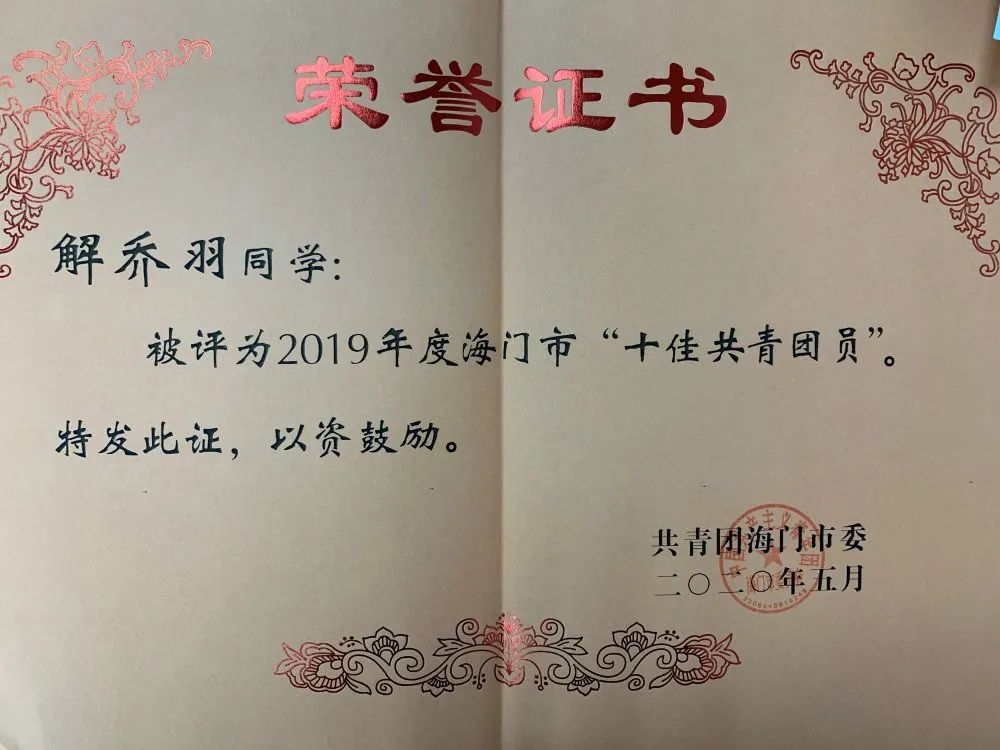 荣誉证书
解乔羽同学：
被评为2019年度海门市“十佳共青团员”。
特发此证，以资鼓励。
共青团海门市委
二〇二〇年五月